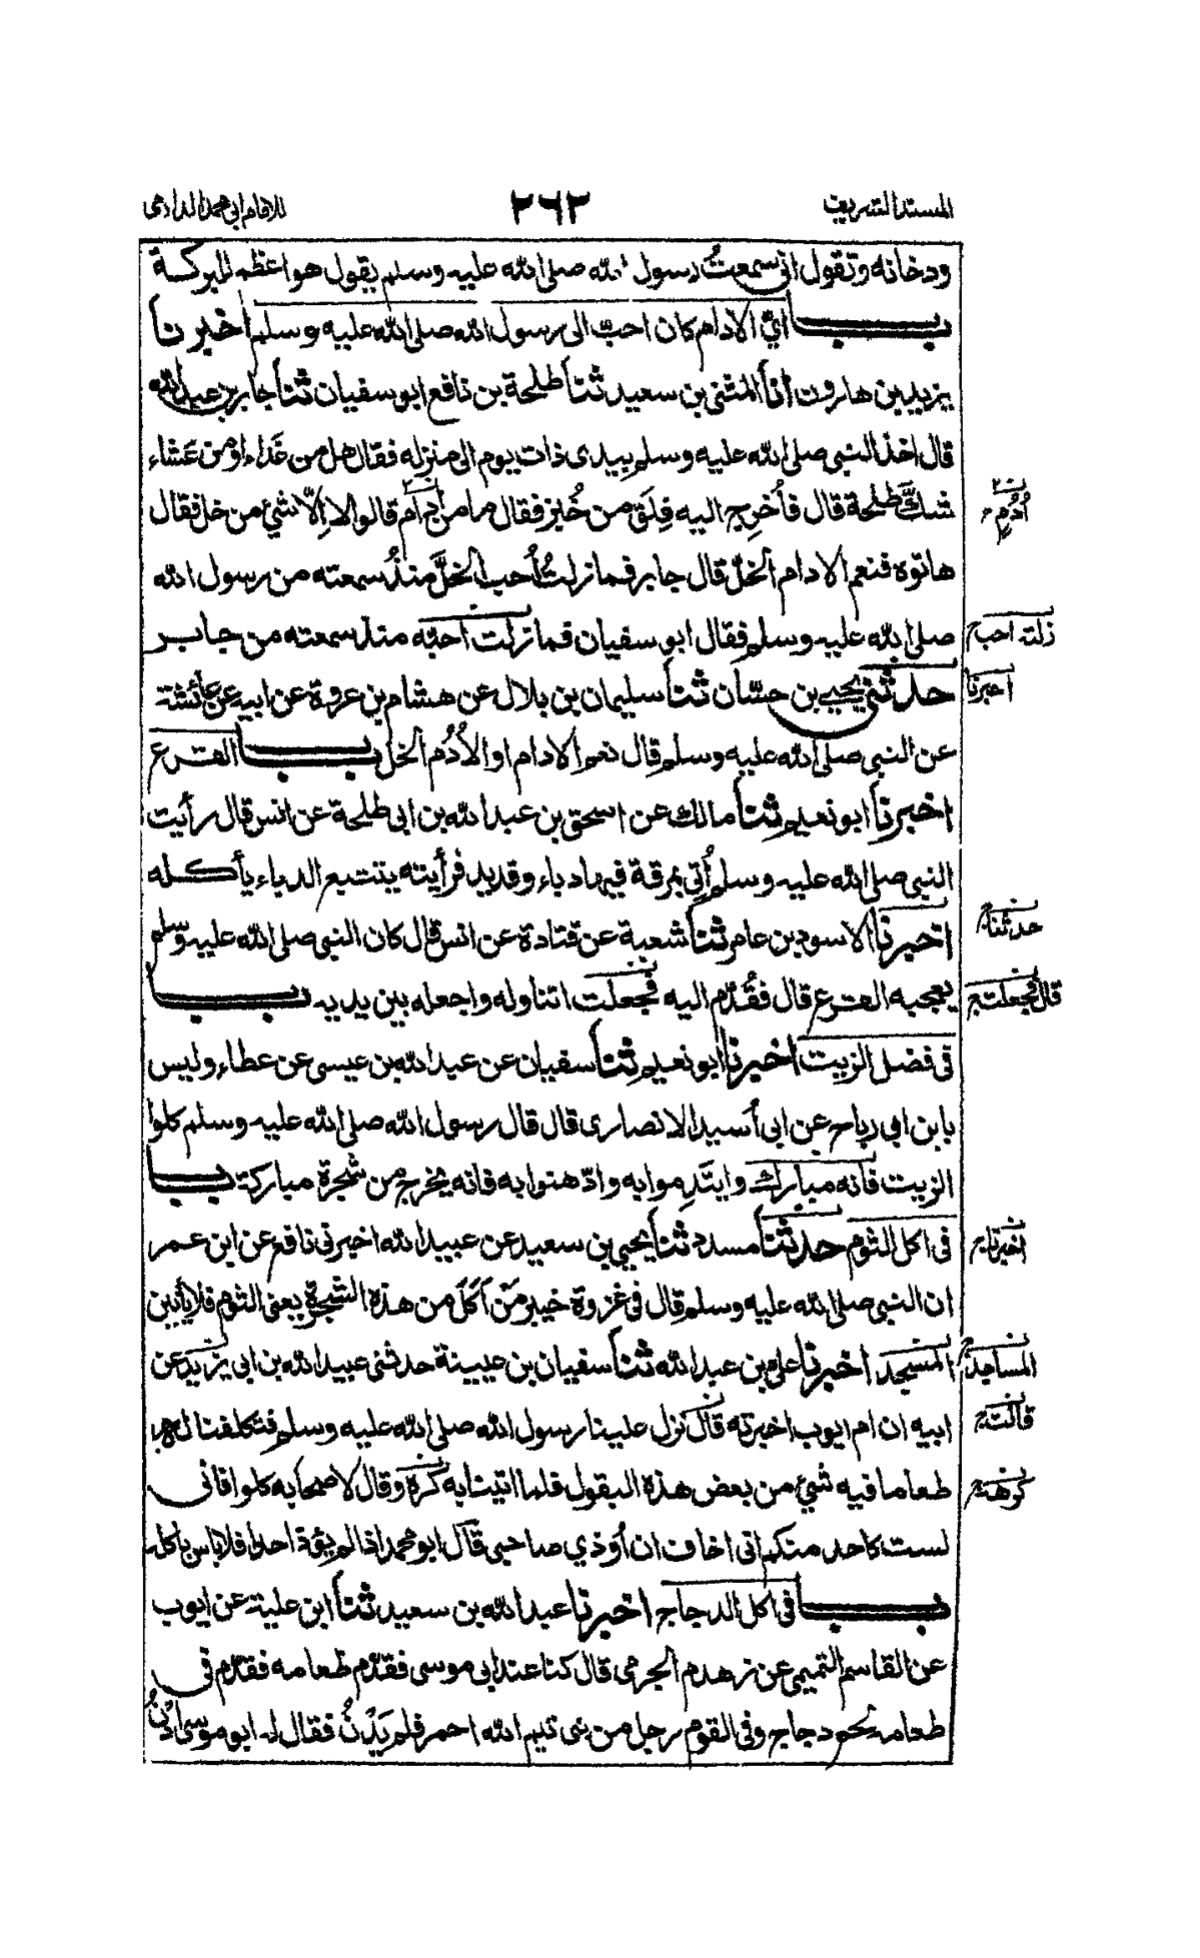 المسند الشريف ٢٦٢ للامام ابي محمد الدارمي
ودخانه وتقول اني سمعتُ رسول الله صلى الله عليه وسلم يقول هو اعظم للبركة
باب ايّ الادام كان احبّ الى رسول الله صلى الله عليه وسلم اخبرنا
يزيد بن هارون انا المثنى بن سعيد ثنا طلحة بن نافع ابو سفيان ثنا جابر بن عبد الله
قال اخذ النبي صلى الله عليه وسلم بيدى ذات يوم الى منزله فقال هل من غَداء او من عَشاء
شكَّ طلحة قال فأُخرج اليه فِلَق من خُبز فقال ما من ادام قالوا لا الّا شيٌ من خل فقال
ادُمٍ
هاتوه فنعم الادام الخلّ قال جابر فما زلتُ اُحب الخلَّ منذُ سمعته من رسول الله
صلى الله عليه وسلم فقال ابو سفيان فما زلت احبّه منذ سمعته من جابر
زلته احب
حدثني يحيى بن حسّان ثنا سليمان بن بلال عن هشام بن عروة عن ابيه عن عائشة
اخبرنا
عن النبي صلى الله عليه وسلم قال نعم الادام او الاُدُم الخل باب القرع
اخبرنا ابو نعيم ثنا مالك عن اسحق بن عبد الله بن ابى طلحة عن انس قال رأيت
النبي صلى الله عليه وسلم اُتي بمرقة فيها دباء وقديد فرأيته يتتبع الدباء يأكله
اخبرنا الاسود بن عامر ثنا شعبة عن قتادة عن انس قال كان النبي صلى الله عليه وسلم
حدثنا
يعجبه القرع قال فقُدّم اليه فجعلت اتناوله واجعله بين يديه باب
قال فجعلت
فى فضل الزيت اخبرنا ابو نعيم ثنا سفيان عن عبد الله بن عيسى عن عطاء وليس
بابن ابى رباح عن ابى اُسيد الانصارى قال قال رسول الله صلى الله عليه وسلم كلوا
الزيت فانه مبارك وايتَدِموا به وادّهنوا به فانه يخرج من شجرة مباركة باب
فى اكل الثوم حدثنا مسدد ثنا يحيى بن سعيد عن عبيد الله اخبرنى نافع عن ابن عمر
اخبرنا
ان النبى صلى الله عليه وسلم قال فى غزوة خيبر مَنْ اَكَلَ من هذه الشجرة يعنى الثوم فلا يأتين
المسجد اخبرنا على بن عبد الله ثنا سفيان بن عيينة حدثنى عبيد الله بن ابى يزيد عن
المساجد
ابيه ان ام ايوب اخبرته قال نزل علينا رسول الله صلى الله عليه وسلم فتكلفنا لهم
قالت
طعاما فيه شيٌ من بعض هذه البقول فلما اتينا به كره وقال لاصحابه كلوا فانى
كرهه
لست كاحد منكم انى اخاف ان اُوذي صاحبي قال ابو محمد اذا لم يؤذ احدا فلا باس باكله
باب فى اكل الدجاج اخبرنا عبد الله بن سعيد ثنا ابن علية عن ايوب
عن القاسم التميمي عن زهدم الجرمى قال كنا عند ابى موسى فقدّم طعامه فقدّم فى
طعامه لحم دجاج وفى القوم رجل من بنى تيم الله احمر فلم يَدْنُ فقال له ابو موسى ادْنُ